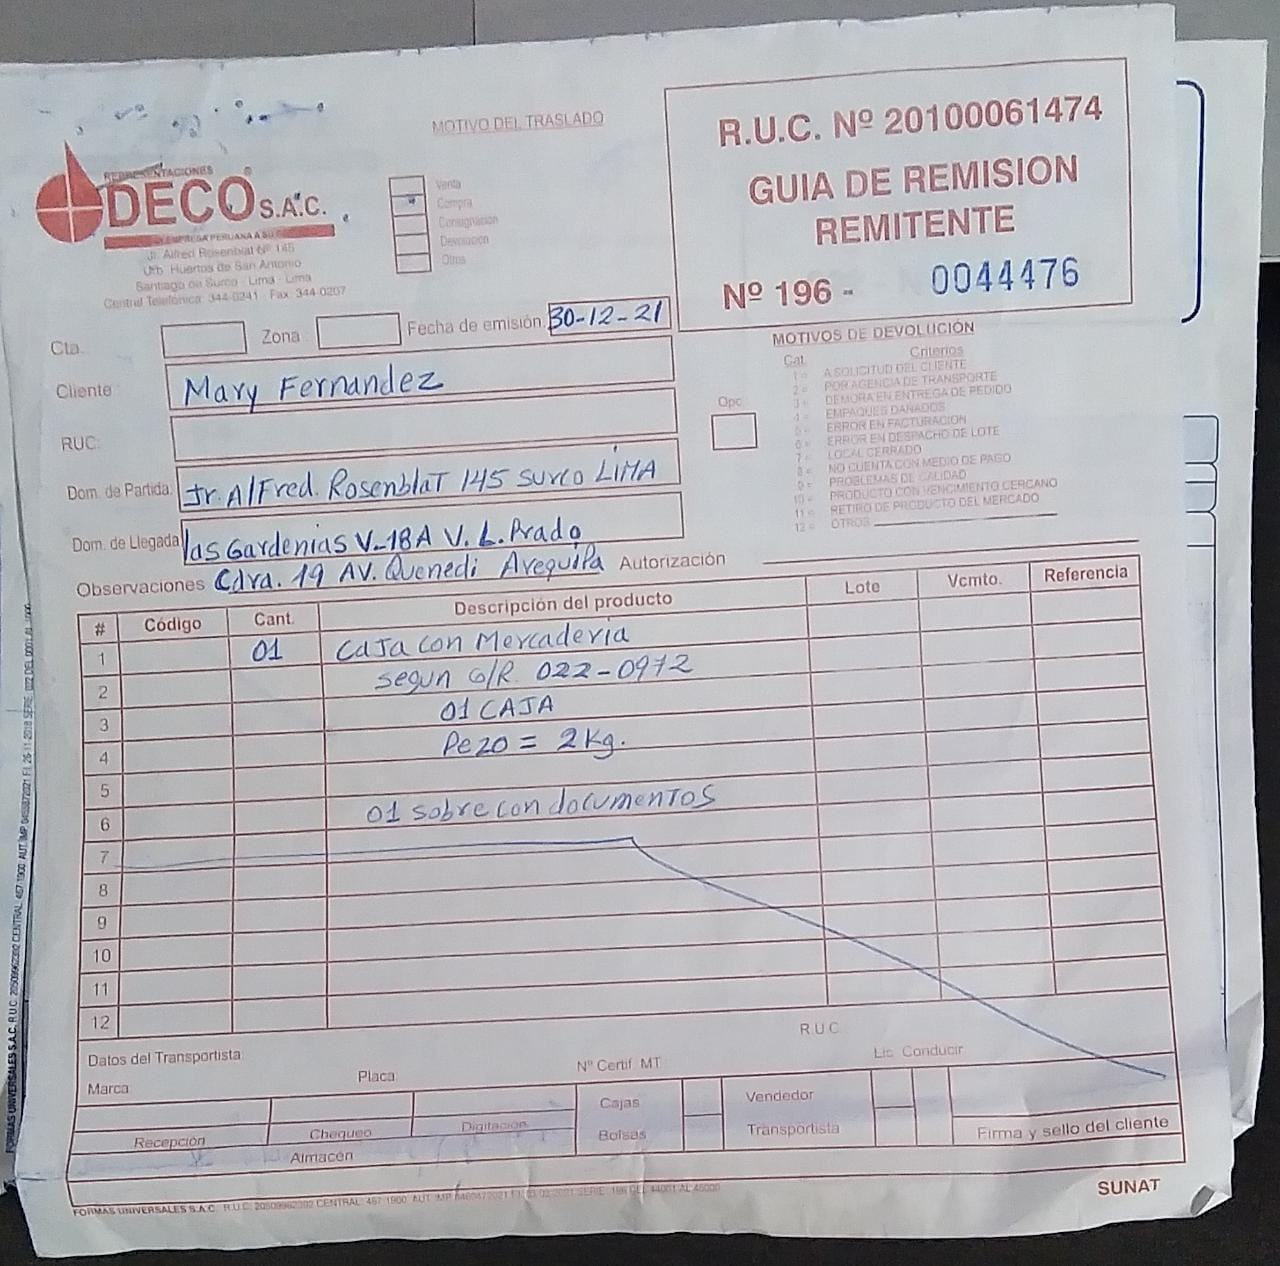 MOTIVO DEL TRASLADO
R.U.C. Nº 20100061474
GUIA DE REMISION
REMITENTE
Nº 196 - 0044476
REPRESENTACIONES
DECO S.A.C.
Jr. Alfred Rosenblat Nº 145
Urb. Huertos de San Antonio
Santiago de Surco - Lima - Lima
Central Telefónica: 344-0241 Fax: 344-0207
Venta
Compra
Consignación
Devolución
Otros
Cta.
Zona
Fecha de emisión: 30-12-21
Cliente Mary Fernandez
RUC:
Dom. de Partida: Jr. Alfred. Rosenblat 145 Surco LIMA
Dom. de Llegada las Gardenias V-18A V. L. Prado
Observaciones Cdra. 19 AV. Quenedi Arequipa Autorización
MOTIVOS DE DEVOLUCIÓN
Cat. Criterios
Opc.
1 = A SOLICITUD DEL CLIENTE
2 = POR AGENCIA DE TRANSPORTE
3 = DEMORA EN ENTREGA DE PEDIDO
4 = EMPAQUES DAÑADOS
5 = ERROR EN FACTURACION
6 = ERROR EN DESPACHO DE LOTE
7 = LOCAL CERRADO
8 = NO CUENTA CON MEDIO DE PAGO
9 = PROBLEMAS DE CALIDAD
10 = PRODUCTO CON VENCIMIENTO CERCANO
11 = RETIRO DE PRODUCTO DEL MERCADO
12 = OTROS
# Código Cant. Descripción del producto Lote Vcmto. Referencia
1 01 Caja con Mercaderia
2 segun G/R 022-0972
3 01 CAJA
4 Pezo = 2 Kg.
5
6 01 sobre con documentos
7
8
9
10
11
12
Datos del Transportista: R.U.C.
Marca: Placa: Nº Certif. MT. Lic. Conducir
Recepción Chequeo Digitación
Almacén
Cajas
Bolsas
Vendedor
Transportista
Firma y sello del cliente
FORMAS UNIVERSALES S.A.C. R.U.C. 20509962392 CENTRAL: 467-1900
SUNAT